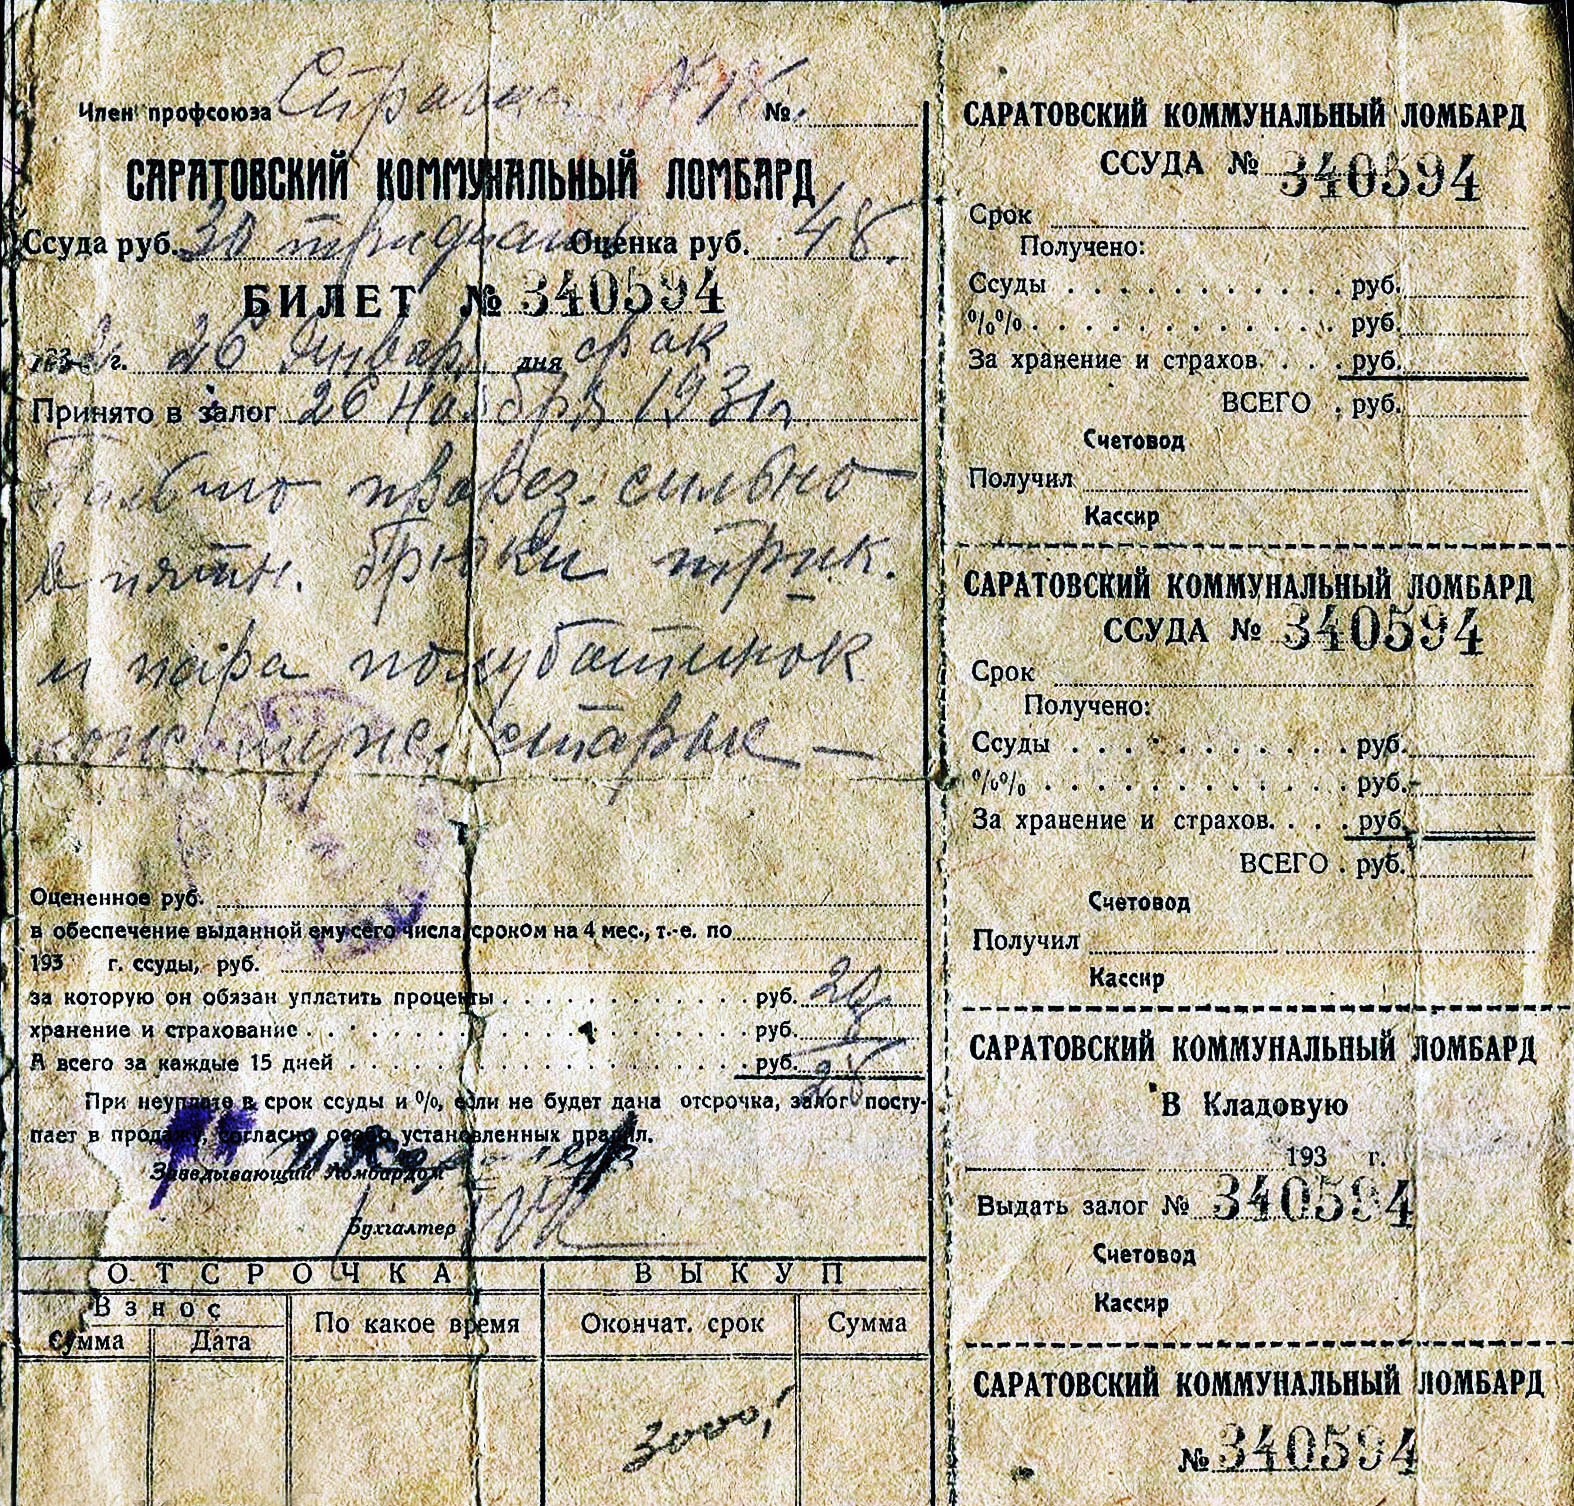 Член профсоюза №
САРАТОВСКИЙ КОММУНАЛЬНЫЙ ЛОМБАРД
Ссуда руб. 30 тридцать Оценка руб. 48.
БИЛЕТ № 340594
193 г. 26 Январ дня срок
Принято в залог 26 Ноября 1931г
Пальто сильно
в пятн. брюки трик.
и пара полубатинок
кож. муж. старые —
Оцененное руб.
в обеспечение выданной ему сего числа, сроком на 4 мес., т.-е. по
193 г. ссуды, руб.
за которую он обязан уплатить проценты руб. 20
хранение и страхование руб.
А всего за каждые 15 дней руб. 28
При неуплате в срок ссуды и %, если не будет дана отсрочка, залог посту-
пает в продажу, согласно особо установленных правил.
Заведывающий Ломбардом
Бухгалтер
ОТСРОЧКА ВЫКУП
Взнос
Сумма Дата По какое время Окончат. срок Сумма
3000,
САРАТОВСКИЙ КОММУНАЛЬНЫЙ ЛОМБАРД
ССУДА № 340594
Срок
Получено:
Ссуды руб.
%% руб.
За хранение и страхов. руб.
ВСЕГО руб.
Счетовод
Получил
Кассир
САРАТОВСКИЙ КОММУНАЛЬНЫЙ ЛОМБАРД
ССУДА № 340594
Срок
Получено:
Ссуды руб.
%% руб.
За хранение и страхов. руб.
ВСЕГО руб.
Счетовод
Получил
Кассир
САРАТОВСКИЙ КОММУНАЛЬНЫЙ ЛОМБАРД
В Кладовую
193 г.
Выдать залог № 340594
Счетовод
Кассир
САРАТОВСКИЙ КОММУНАЛЬНЫЙ ЛОМБАРД
№ 340594